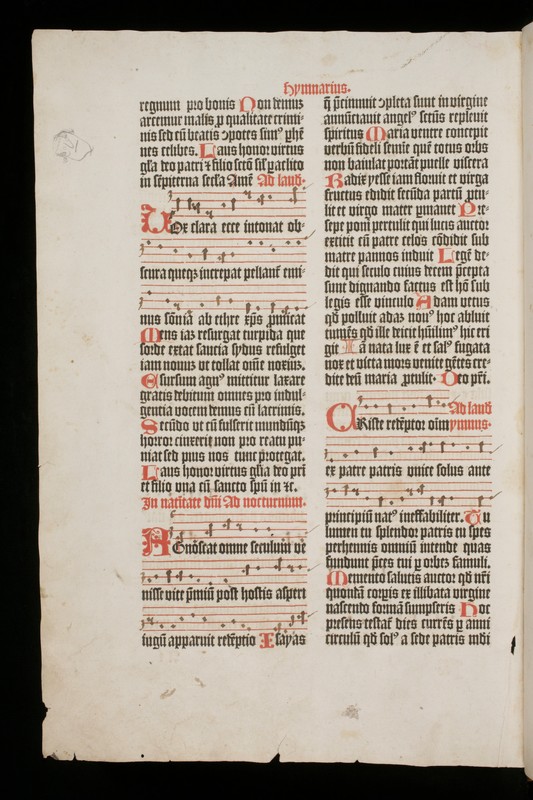 Hymnarius.
regnum pro bonis Non demus
arcemur malis p̱ qualitate crimi-
nis sed cū beatis ↄpotes simꝰ ꝑhē
nes celibes. Laus honor virtus
gl̄a deo patri ⁊ filio sctō sil̄ paclito
in sēpiterna secl̄a Amē Ad laud̄.
Vox clara ecce intonat ob-
scura queqꝫ increpat pellant̄ emi-
nus sōnia ab ethre xp̄s ꝓmicat
Mens iaꝫ resurgat turpida que
sorde extat saucia sydus refulget
iam nouuꝫ vt tollat om̄e noxiuꝫ.
E sursum agnꝰ mittitur laxare
gratis debitum omnes pro indul-
gentia vocem demus cū lacrimis.
Secūdo vt cū fulserit mundūqꝫ
horror cinxerit non pro reatu pu-
niat sed pius nos tunc ꝓtegat.
Laus honor virtus gl̄ia deo pr̄i
et filio vna cū sancto sp̄u in ⁊c.
In natītate dn̄i Ad nocturnum.
Agnoscat omne seculum ve
nisse vite p̄miū post hostis asperi
iugū apparuit redēptio Esayas
q̄ p̄cinnuit ↄpleta sunt in virgine
annūciauit angelꝰ sctūs repleuit
spiritus Maria ventre concepit
verbū fideli semīe quē totus orbis
non baiulat portāt puelle viscera
Radix yesse iam floruit et virga
fructus edidit fecūda partū ꝓtu-
lit et virgo mater ꝑmanet Pre-
sepe poni pertulit qui lucis auctor
extitit cū patre celos cōdidit sub
matre pannos induit Legē de-
dit qui seculo cuius decem p̄cepta
sunt dignando factus est hō sub
legis esse vinculo Adam vetus
qd̄ polluit adaꝫ nouꝰ hoc abluit
tumēs qd̄ ille deicit hūilimꝰ hic eri
git Iā nata lux ē et salꝰ fugata
nox et victa mors venite gētes cre-
dite deū maria ꝓtulit. Deo pr̄i.
Ad laud̄
Criste redēptor oīm ymnus.
ex patre patris vnice solus ante
principiū natꝰ ineffabiliter. Tu
lumen tu splendor patris tu spes
perhennis omniū intende quas
fundunt p̄ces tui ꝑ orbeꝫ famuli.
Memento salutis auctor qd̄ nr̄i
quondā corꝑis ex illibata virgine
nascendo formā sumpseris Hoc
presens testat̄ dies currēs ꝑ anni
circulū qd̄ solꝰ a sede patris mūdi